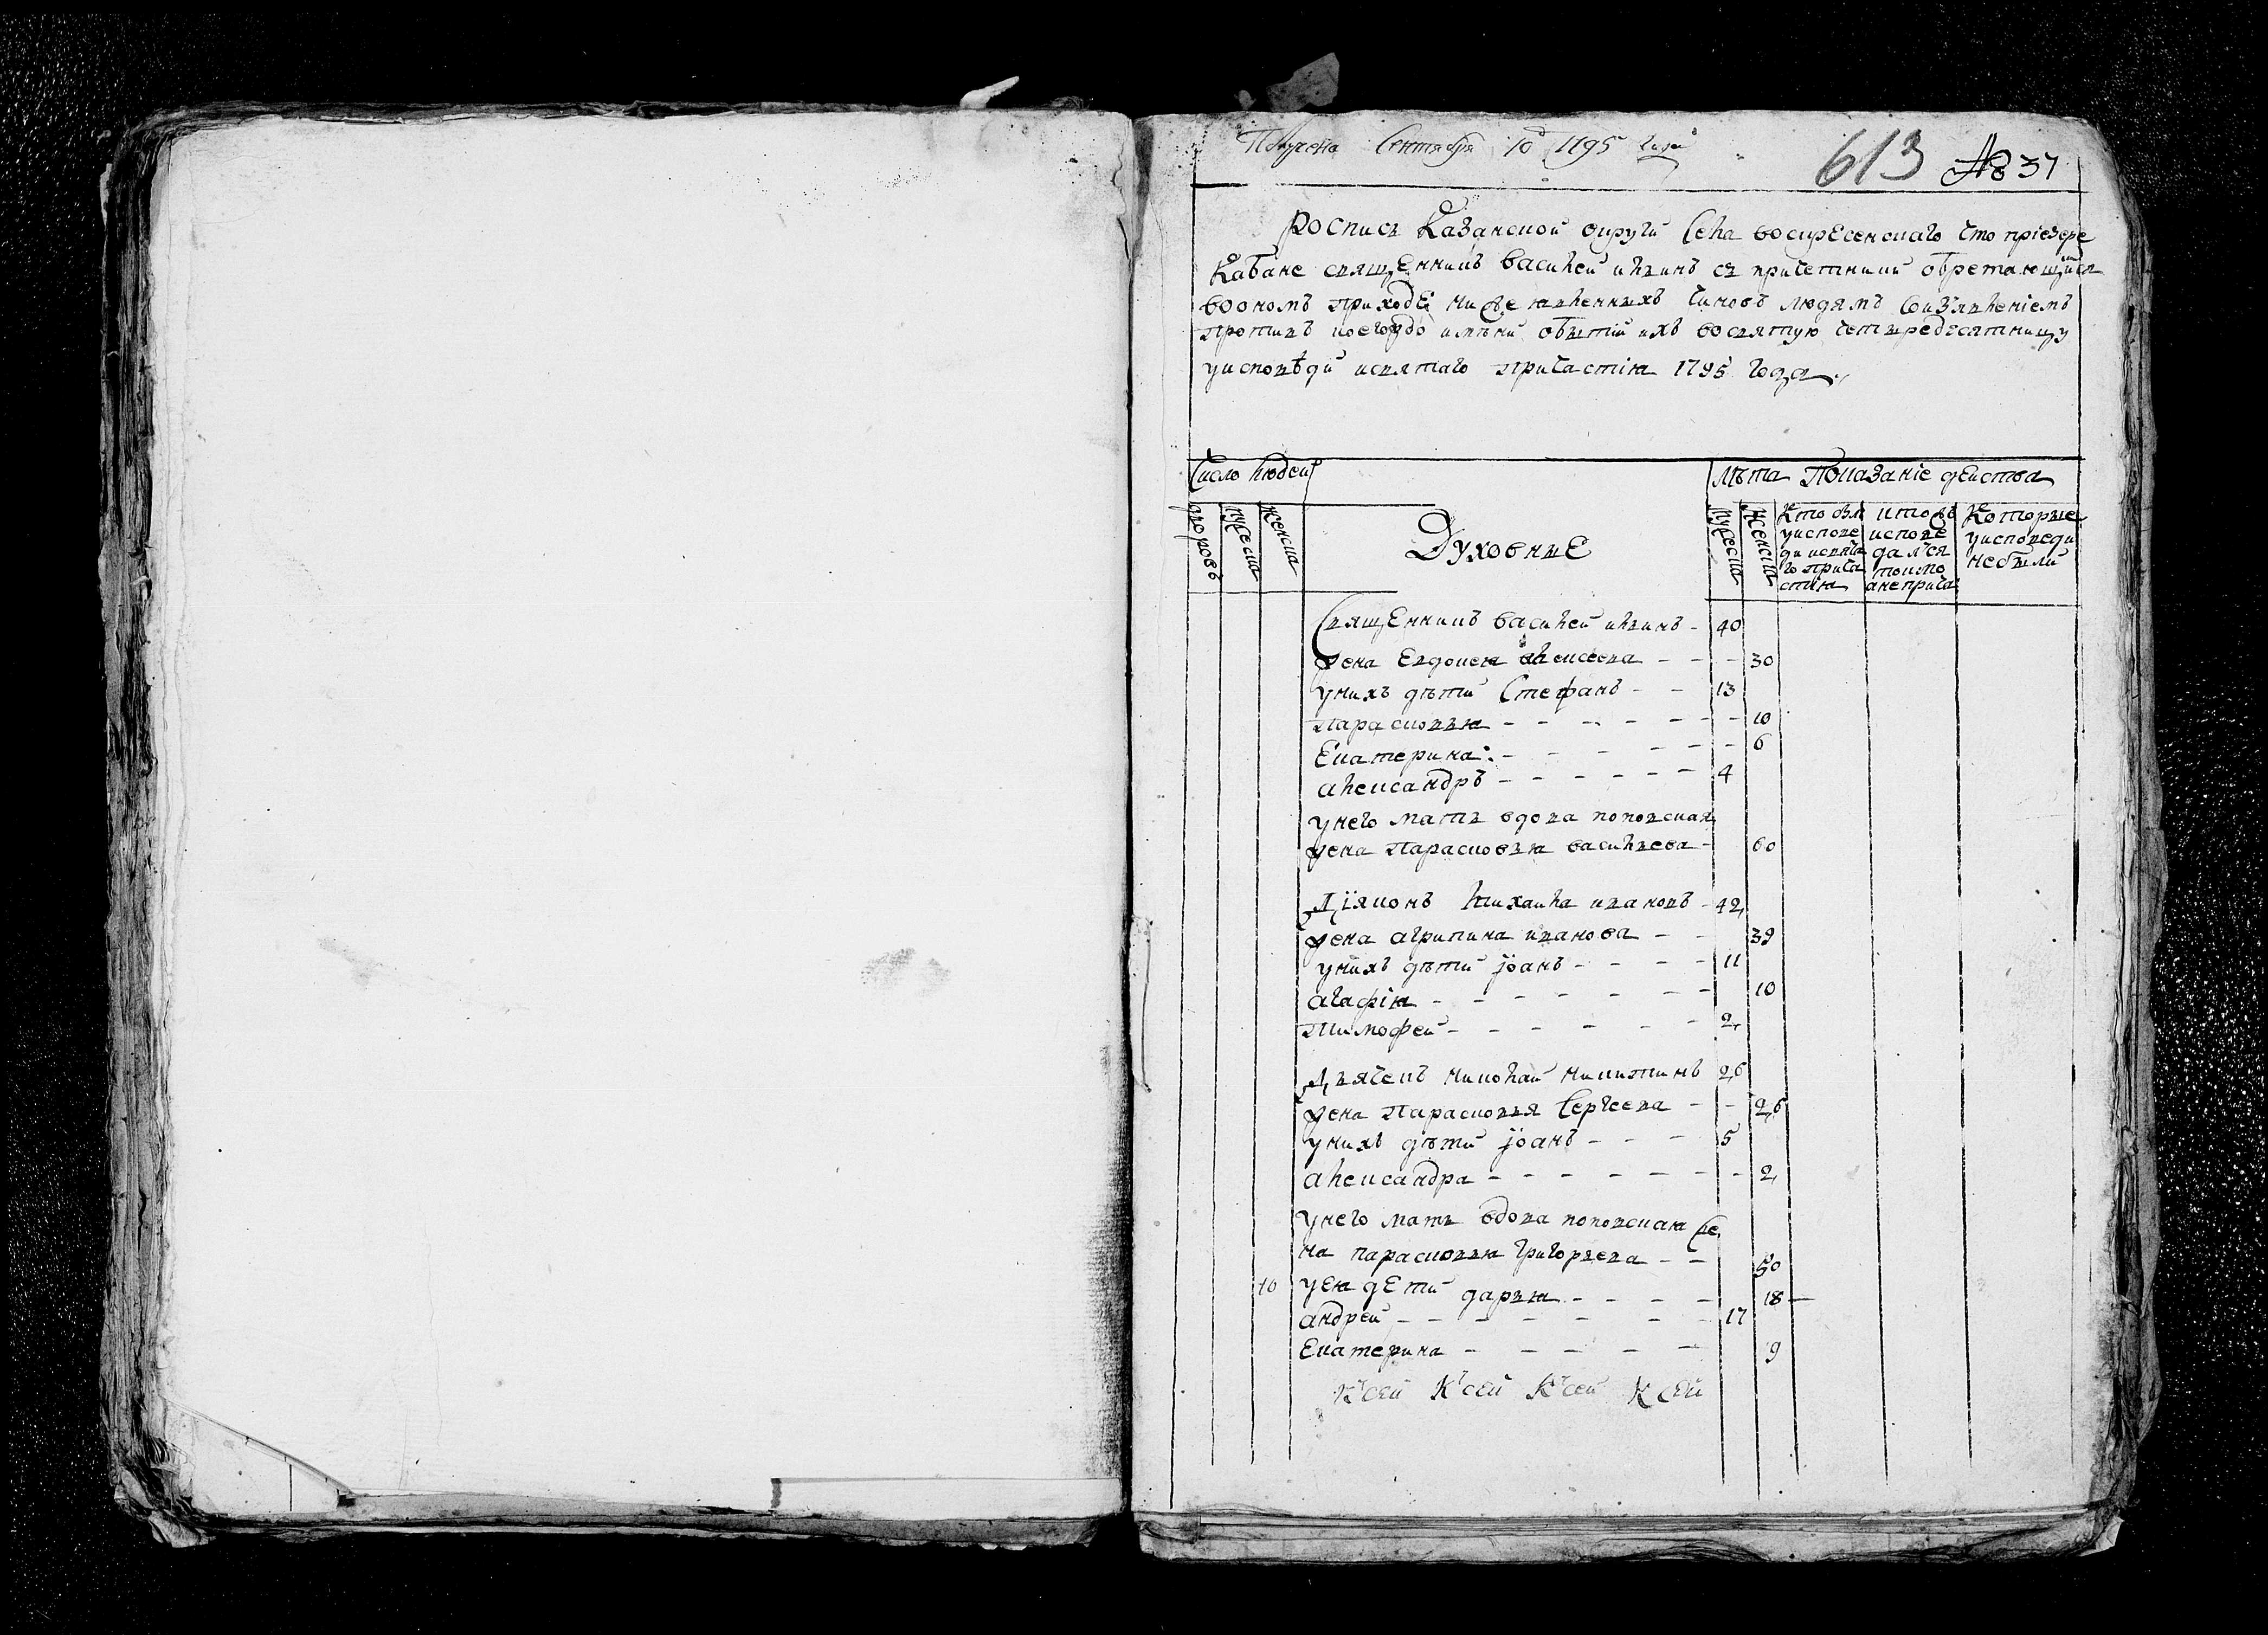 Получена Сентября 10 1795 года
613 № 37
Роспись Казанской округи Села воскрЕсенскаго что приезере
Кабане свящЕнникъ василей илвинъ съ причетники обретающимся
воономъ приходЕ нижеявленныхъ чиновъ людямъ соизявлениемъ
противъ коегождо имѣни обытии ихъ восвятую четыредесятницу
уисповѣди исвятаго причастия 1795 года
Число людей
лѣта Показание дЕйства
дворовъ
мужеска
женска
ДуховныЕ
мужеска
женска
Кто были
уиспове
ди исвята
го прича
стия
кто
испове
дался
токмо
анеприча
Которые
уисповеди
небыли
СвящЕнникъ василей илвинъ - 40
жена Евдокея алексеева - - - 30
унихъ дѣти Стефанъ - - 13
парасковья - - - - - - 10
Екатерина - - - - - - 6
александръ - - - - - - 4
унего мать вдова поповская
жена парасковья василвева - 60
Дияконъ михаила ивановъ - 42
жена агрипина иванова - - 39
унихъ дѣти иоанъ - - - - 11
агафия - - - - - - - 10
тимофей - - - - - - 2
Дьячекъ николай никитинъ 26
жена парасковья Сергеева - - 26
унихъ дѣти иоанъ - - - 5
александра - - - - - - - 2
унего мать вдова поповская же
на парасковья григорьева - - 50
10 уея дЕти дарья - - - - 18 -
андрей - - - - - - - 17
Екатерина - - - - - 9